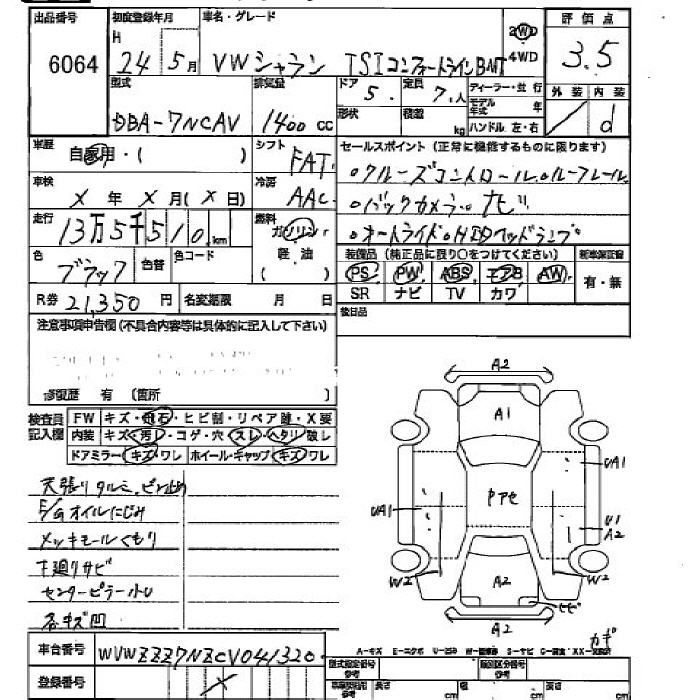 出品番号 初度登録年月 車名・グレード 評価点
6064 H 24 5月 VW シャラン TSIコンフォートラインBMT 2WD ・4WD 3.5
型式 排気量 ドア 定員 ディーラー・並行 外装 内装
DBA-7NCAV 1400 cc 5. 7.人 モデル年式 年 d
形状 積載 kg ハンドル 左・右
車歴 自家用・( ) シフト FAT. セールスポイント(正常に機能するものに限ります)
車検 X 年 X 月( X 日) 冷房 AAC. oクルーズコントロール.oルーフレール.
oバックカメラ.o ナビ
走行 13万5千510.km 燃料 ガソリン oオートライトoHIDヘッドランプ
色 ブラック 色替 色コード 軽・油 ( ) 装備品(純正品に限り○をつけてください) 新車保証書
PS PW ABS エアB AW 有・無
R券 21,350 円 名変期限 月 日 SR ナビ TV カワ
注意事項申告欄(不具合内容等は具体的に記入して下さい) 後日品
修復歴 有 〔箇所 〕
検査員記入欄 FW キズ・飛石・ヒビ割・リペア跡・X要
内装 キズ・汚レ・コゲ・穴 スレ・ヘタリ 破レ
ドアミラー キズ・ワレ ホイール・キャップ キズ ワレ
天張りタルミ.ピン止め
E/Gオイルにじみ
メッキモールくもり
下廻りサビ
センターピラー小U
各キズ凹
A2
A1
UA1
UA1
Pアセ
U1
A2
W2
W2
A2
ヒビ
A2
カギ
車台番号 WVWZZZ7NZCV041320.
登録番号 X
A-キズ E-エクボ U-凹み W-補修跡 S-サビ C-腐食 XX-交換済
型式指定番号 参考 類別区分番号 参考
長さ cm 幅 cm 高さ cm